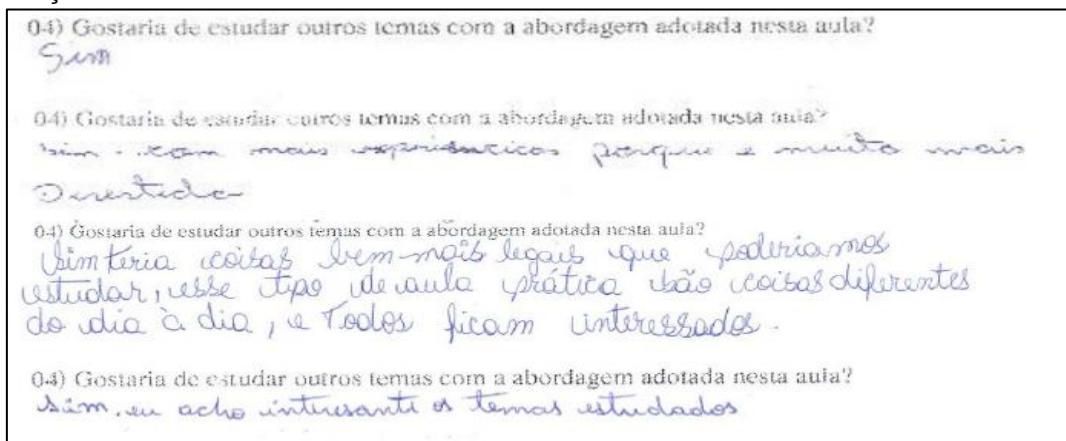 04) Gostaria de estudar outros temas com a abordagem adotada nesta aula?
Sim
04) Gostaria de estudar outros temas com a abordagem adotada nesta aula?
sim. com mais experiencias porque e muito mais
Divertida
04) Gostaria de estudar outros temas com a abordagem adotada nesta aula?
Sim teria coisas bem mais legais que poderiamos
estudar, esse tipo de aula prática são coisas diferentes
do dia à dia, e Todos ficam interessados.
04) Gostaria de estudar outros temas com a abordagem adotada nesta aula?
sim, eu acho interesante os temas estudados